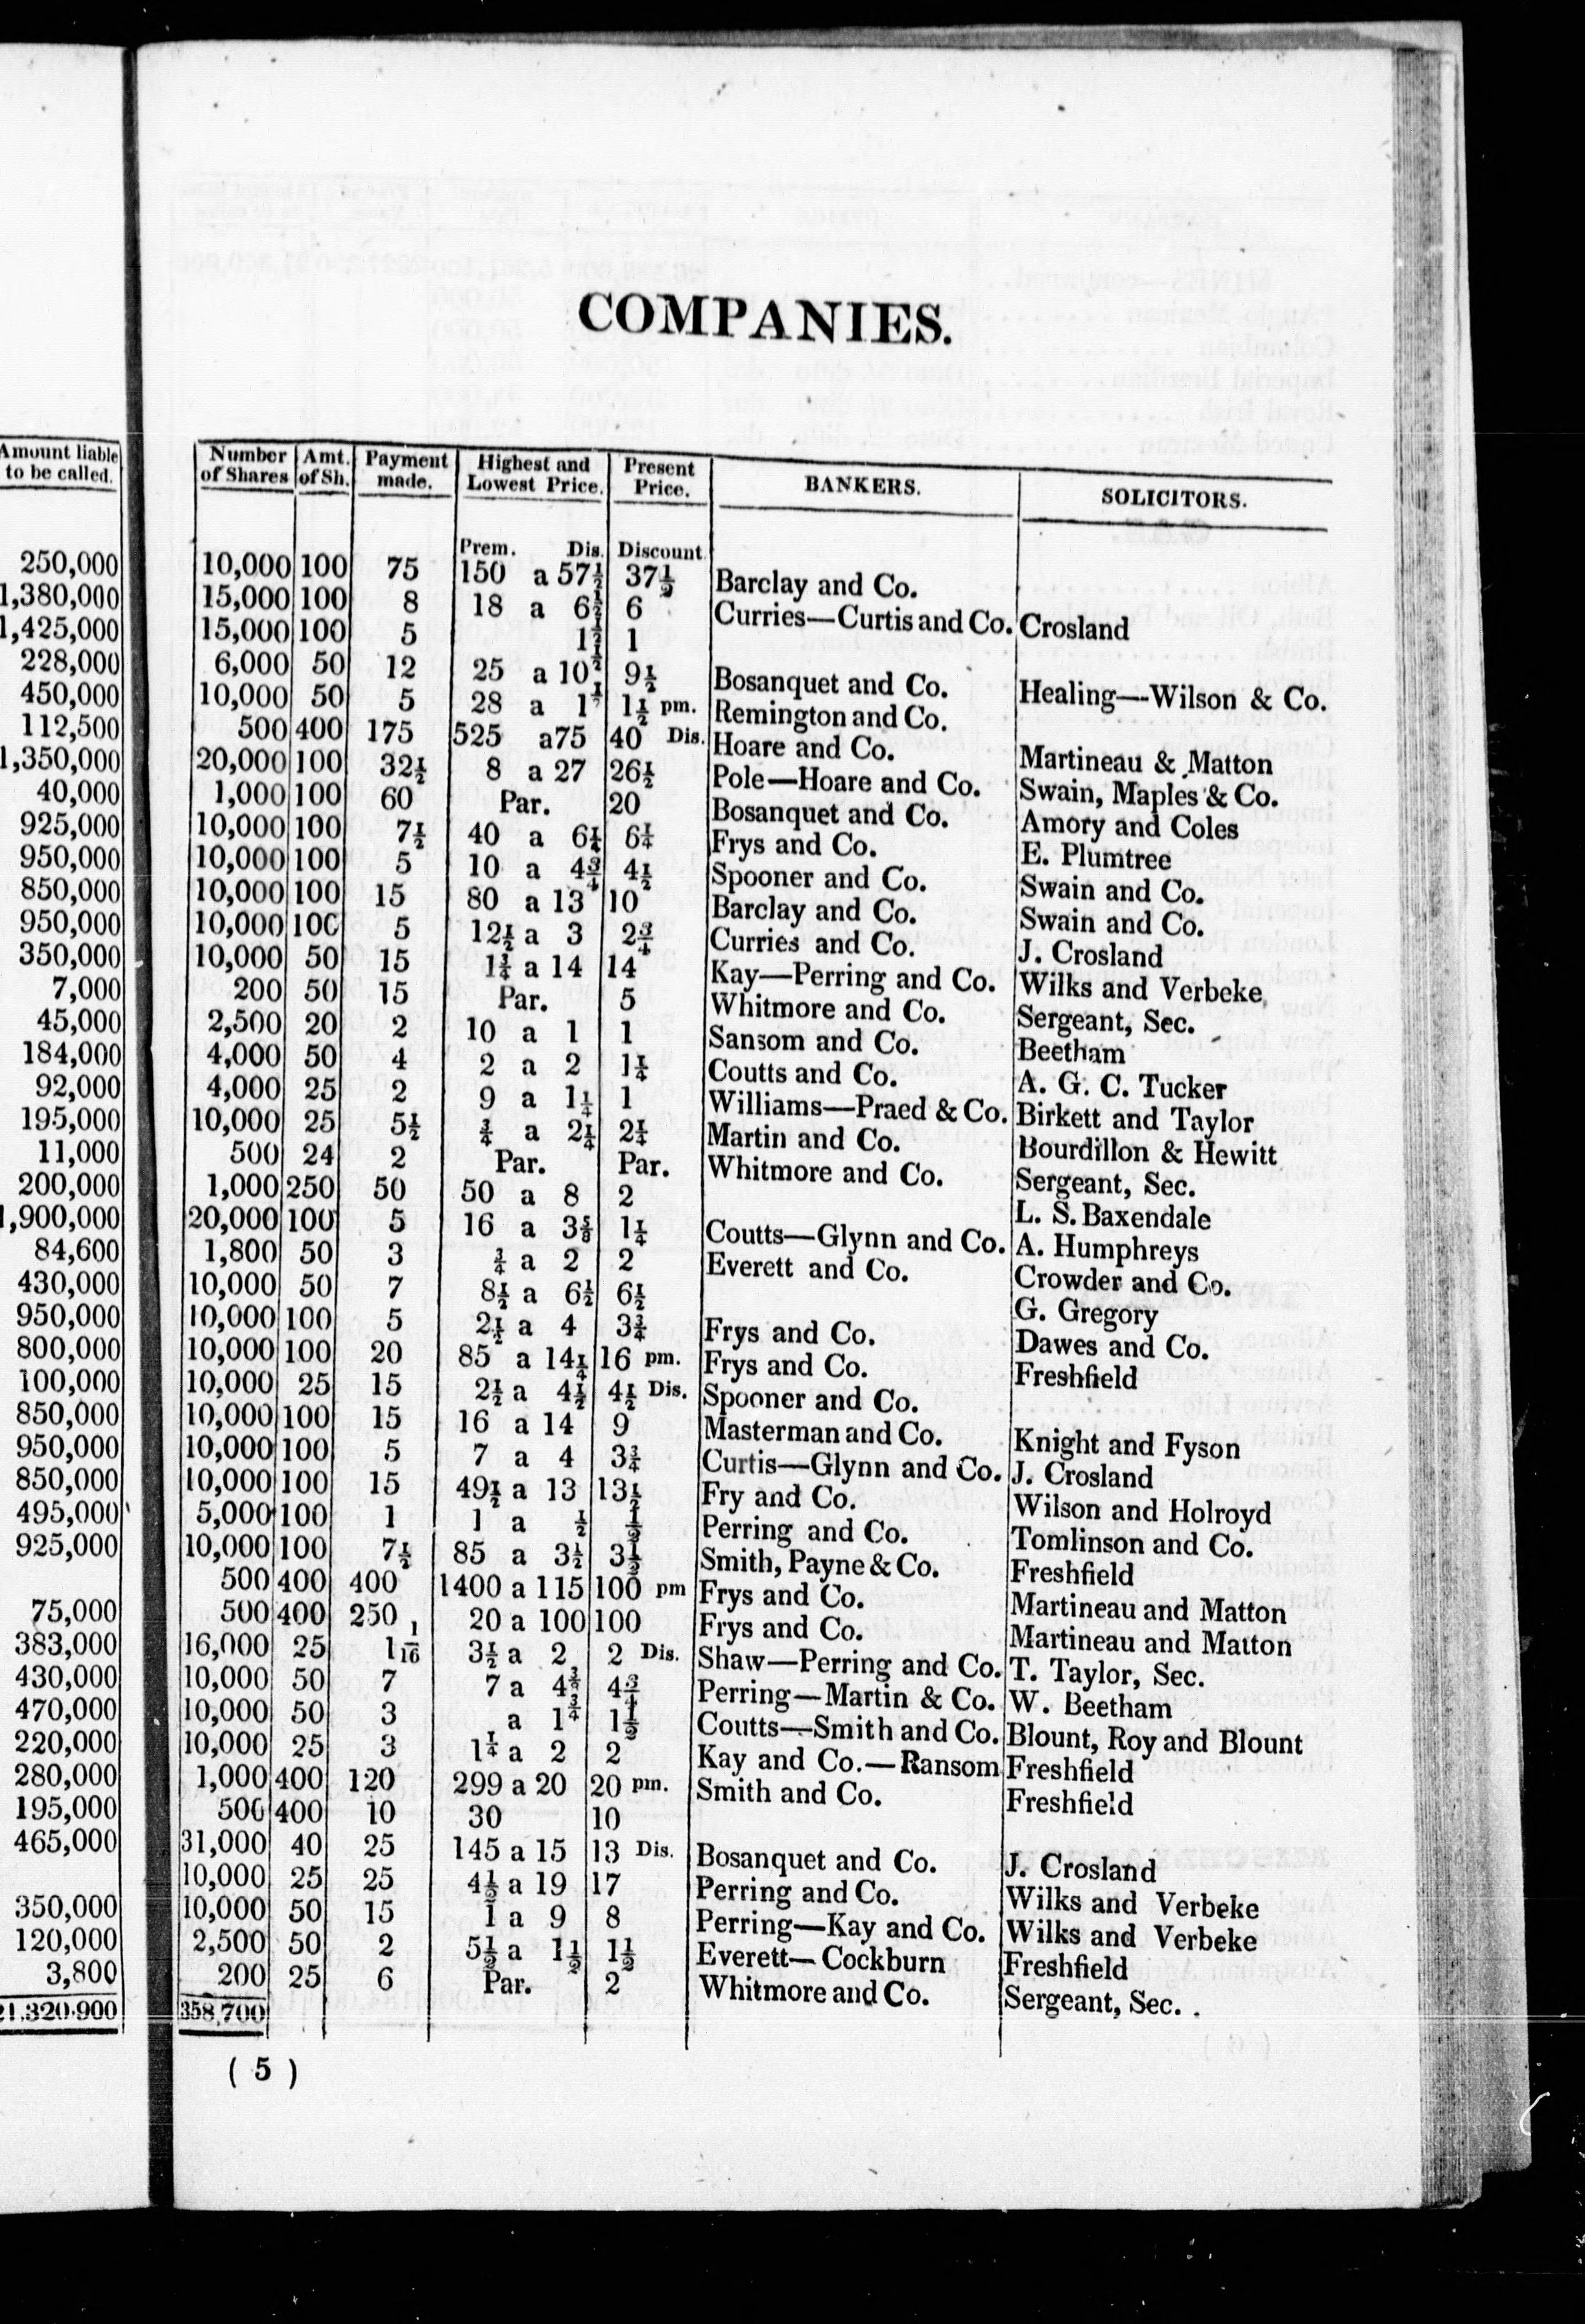 Amount liable
to be called.
250,000
1,380,000
1,425,000
228,000
450,000
112,500
1,350,000
40,000
925,000
950,000
850,000
950,000
350,000
7,000
45,000
184,000
92,000
195,000
11,000
200,000
1,900,000
84,600
430,000
950,000
800,000
100,000
850,000
950,000
850,000
495,000
925,000
75,000
383,000
430,000
470,000
220,000
280,000
195,000
465,000
350,000
120,000
3,800
21,320,900
COMPANIES.
Number of Shares Amt. of Sh. Payment made. Highest and Lowest Price. Present Price. BANKERS. SOLICITORS.
Prem. Dis. Discount.
10,000 100 75 150 a 57½ 37½ Barclay and Co.
15,000 100 8 18 a 6½ 6 Curries—Curtis and Co. Crosland
15,000 100 5 1½ 1
6,000 50 12 25 a 10½ 9½ Bosanquet and Co. Healing—Wilson & Co.
10,000 50 5 28 a 1½ 1½ pm. Remington and Co.
500 400 175 525 a75 40 Dis. Hoare and Co. Martineau & Matton
20,000 100 32½ 8 a 27 26½ Pole—Hoare and Co. Swain, Maples & Co.
1,000 100 60 Par. 20 Bosanquet and Co. Amory and Coles
10,000 100 7½ 40 a 6¼ 6¼ Frys and Co. E. Plumtree
10,000 100 5 10 a 4¾ 4½ Spooner and Co. Swain and Co.
10,000 100 15 80 a 13 10 Barclay and Co. Swain and Co.
10,000 100 5 12½ a 3 2¾ Curries and Co. J. Crosland
10,000 50 15 1¼ a 14 14 Kay—Perring and Co. Wilks and Verbeke
200 50 15 Par. 5 Whitmore and Co. Sergeant, Sec.
2,500 20 2 10 a 1 1 Sansom and Co. Beetham
4,000 50 4 2 a 2 1¼ Coutts and Co. A. G. C. Tucker
4,000 25 2 9 a 1¼ 1 Williams—Praed & Co. Birkett and Taylor
10,000 25 5½ ¾ a 2¼ 2¼ Martin and Co. Bourdillon & Hewitt
500 24 2 Par. Par. Whitmore and Co. Sergeant, Sec.
1,000 250 50 50 a 8 2 L. S. Baxendale
20,000 100 5 16 a 3⅝ 1¼ Coutts—Glynn and Co. A. Humphreys
1,800 50 3 ¾ a 2 2 Everett and Co. Crowder and Co.
10,000 50 7 8½ a 6½ 6½ G. Gregory
10,000 100 5 2½ a 4 3¾ Frys and Co. Dawes and Co.
10,000 100 20 85 a 14¼ 16 pm. Frys and Co. Freshfield
10,000 25 15 2½ a 4½ 4½ Dis. Spooner and Co.
10,000 100 15 16 a 14 9 Masterman and Co. Knight and Fyson
10,000 100 5 7 a 4 3¾ Curtis—Glynn and Co. J. Crosland
10,000 100 15 49½ a 13 13½ Fry and Co. Wilson and Holroyd
5,000 100 1 1 a ½ ½ Perring and Co. Tomlinson and Co.
10,000 100 7½ 85 a 3½ 3½ Smith, Payne & Co. Freshfield
500 400 400 1400 a 115 100 pm Frys and Co. Martineau and Matton
500 400 250 20 a 100 100 Frys and Co. Martineau and Matton
16,000 25 1 1/16 3½ a 2 2 Dis. Shaw—Perring and Co. T. Taylor, Sec.
10,000 50 7 7 a 4¾ 4¾ Perring—Martin & Co. W. Beetham
10,000 50 3 a 1¾ 1½ Coutts—Smith and Co. Blount, Roy and Blount
10,000 25 3 1¼ a 2 2 Kay and Co.—Ransom Freshfield
1,000 400 120 299 a 20 20 pm. Smith and Co. Freshfield
500 400 10 30 10
31,000 40 25 145 a 15 13 Dis. Bosanquet and Co. J. Crosland
10,000 25 25 4½ a 19 17 Perring and Co. Wilks and Verbeke
10,000 50 15 1 a 9 8 Perring—Kay and Co. Wilks and Verbeke
2,500 50 2 5½ a 1½ 1½ Everett—Cockburn Freshfield
200 25 6 Par. 2 Whitmore and Co. Sergeant, Sec.
358,700
( 5 )